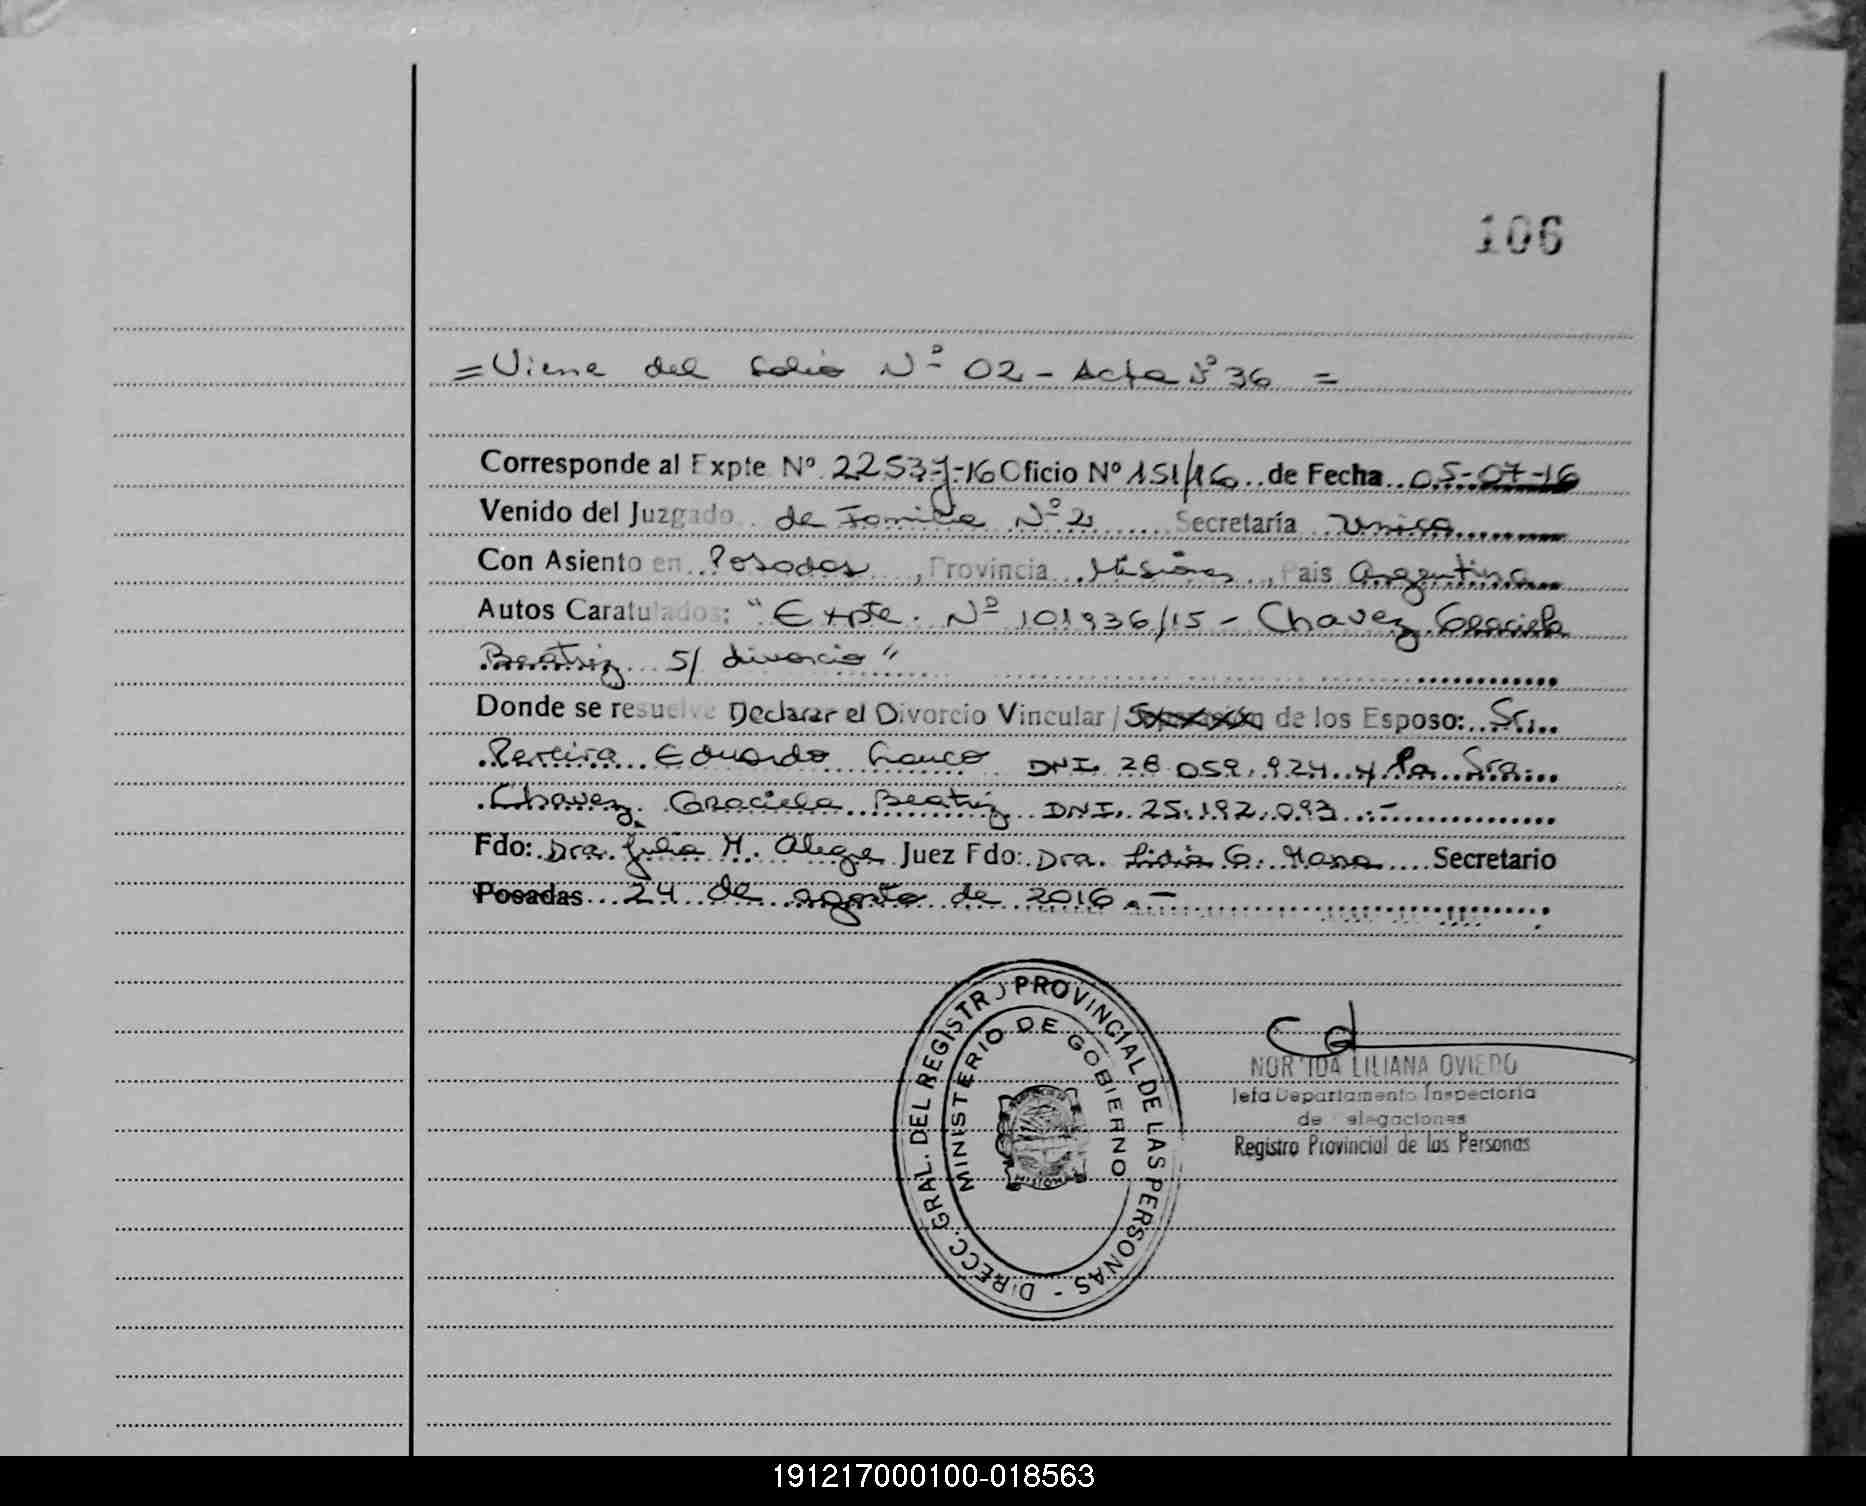 106
= Viene del folio Nº 02 - Acta Nº 36 =
Corresponde al Expte Nº 2253 J-16 Oficio Nº 151/16 de Fecha 05-07-16
Venido del Juzgado de Familia Nº 2 Secretaría Unica
Con Asiento en Posadas, Provincia Misiones, Pais Argentina
Autos Caratulados: "Expte. Nº 101936/15 - Chavez Graciela
Beatriz S/ divorcio"
Donde se resuelve Declarar el Divorcio Vincular / de los Esposo: Sr.
Pereira Eduardo DNI. 28.059.924 y la Sra.
Chavez Graciela Beatriz DNI. 25.192.093.-
Fdo: Dra. Julia M. Alegre Juez Fdo: Dra. Lidia G. Secretario
Posadas 24 de agosto de 2016.-
DIRECC. GRAL. DEL REGISTRO PROVINCIAL DE LAS PERSONAS -
MINISTERIO DE GOBIERNO
MISIONES
LILIANA OVIEDO
Jefa Departamento Inspectoria
de Delegaciones
Registro Provincial de las Personas
191217000100-018563